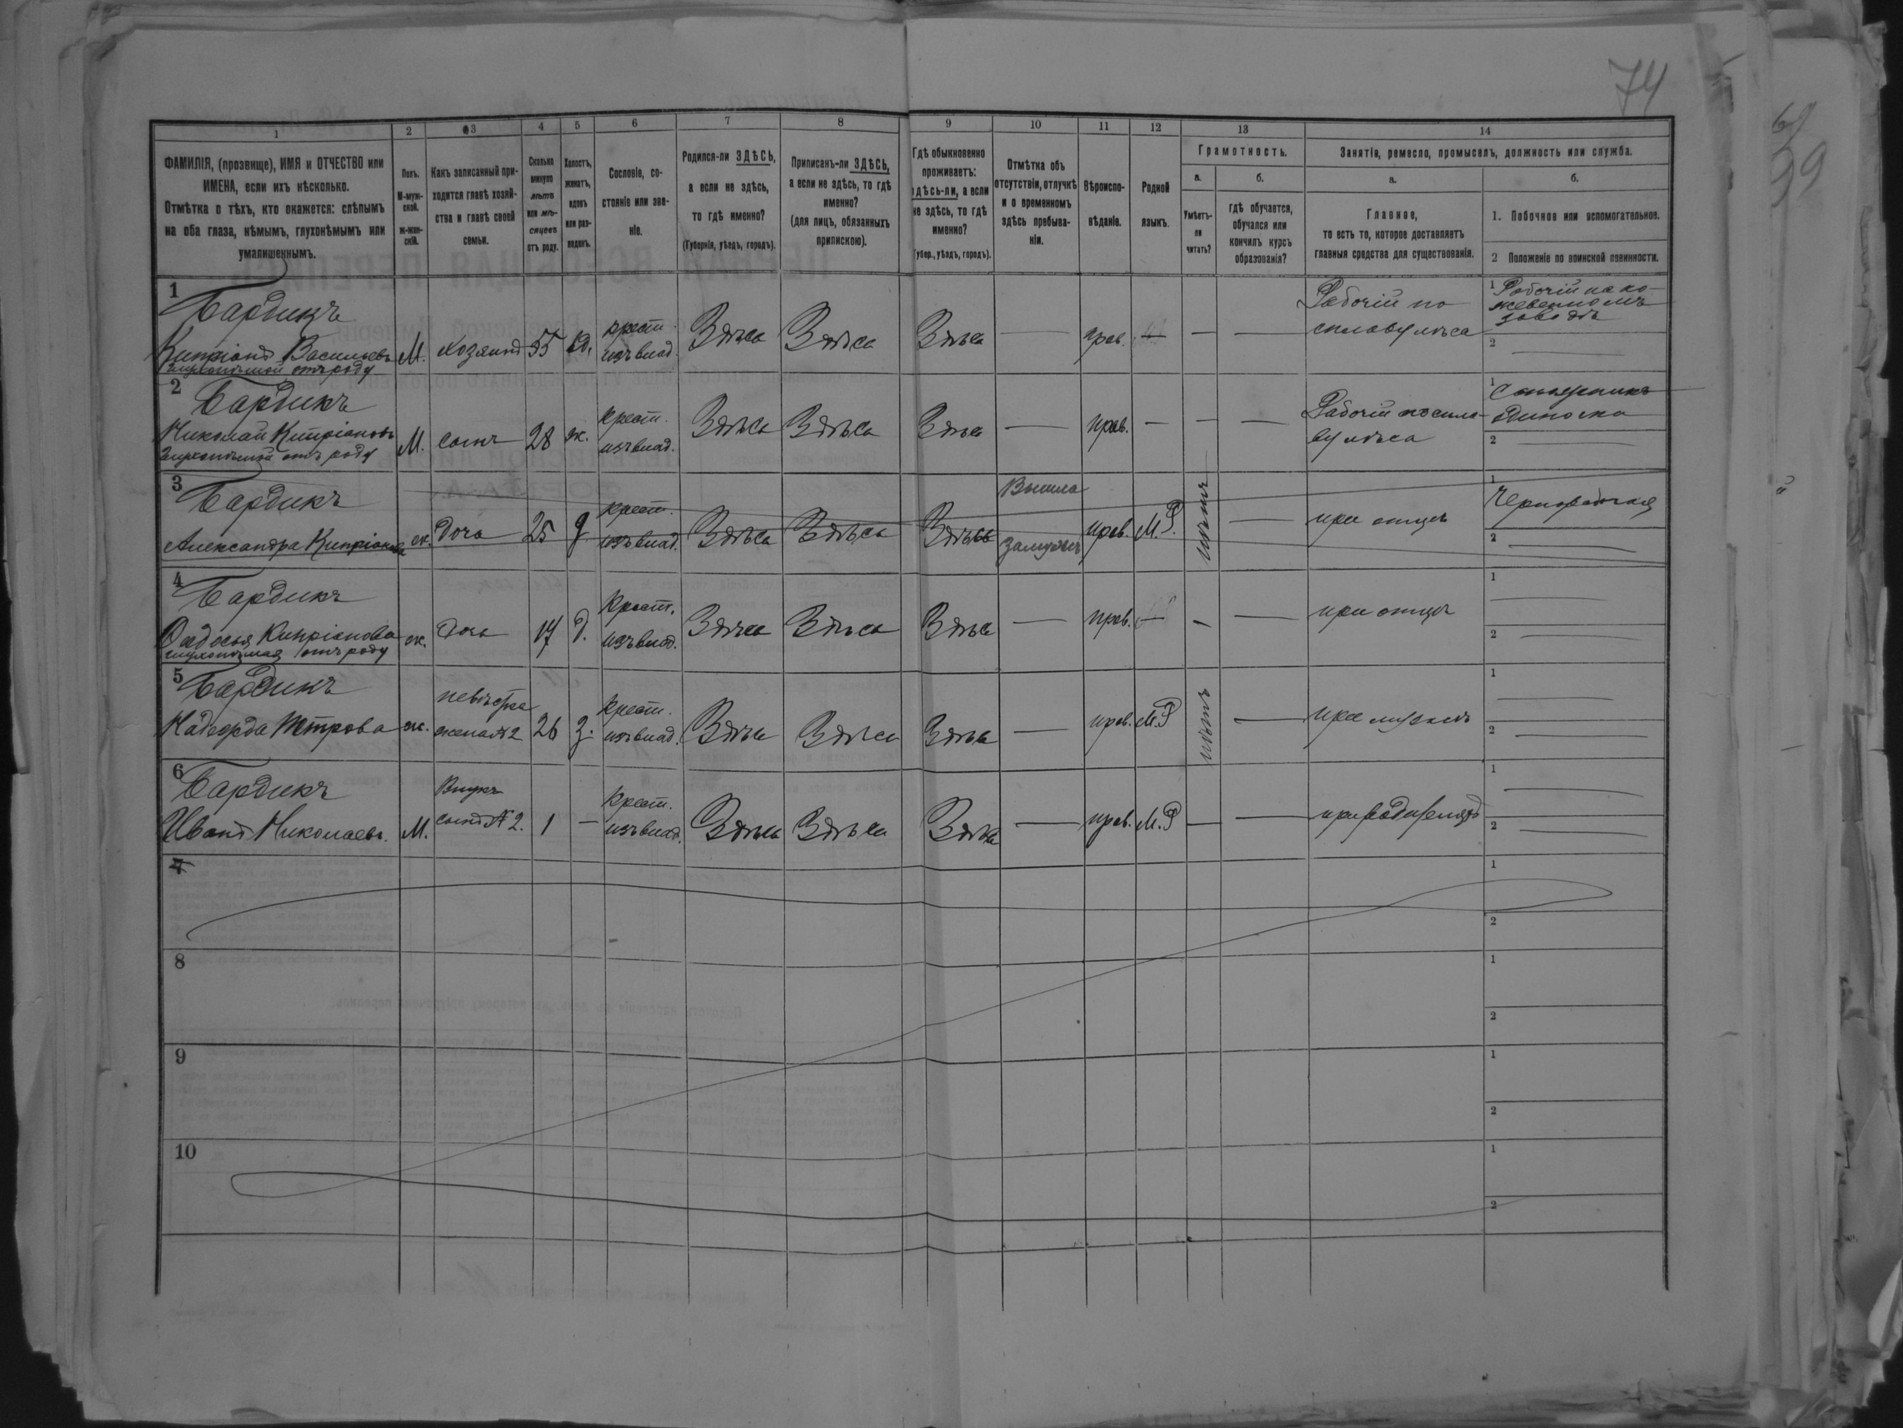 74
1 2 3 4 5 6 7 8 9 10 11 12 13 14
ФАМИЛІЯ, (прозвище), ИМЯ и ОТЧЕСТВО или
ИМЕНА, если ихъ нѣсколько.
Отмѣтка о тѣхъ, кто окажется: слѣпымъ
на оба глаза, нѣмымъ, глухонѣмымъ или
умалишеннымъ.
Полъ.
М-муж-
ской.
ж-жен-
скій.
Какъ записанный при-
ходится главѣ хозяй-
ства и главѣ своей
семьи.
Сколько
минуло
лѣтъ
или мѣ-
сяцевъ
отъ роду.
Холостъ,
женатъ,
вдовъ
или раз-
веденъ.
Сословіе, со-
стояніе или зва-
ніе.
Родился-ли ЗДѢСЬ,
а если не здѣсь,
то гдѣ именно?
(Губернія, уѣздъ, городъ).
Приписанъ-ли ЗДѢСЬ,
а если не здѣсь, то гдѣ
именно?
(для лицъ, обязанныхъ
припискою).
Гдѣ обыкновенно
проживаетъ:
здѣсь-ли, а если
не здѣсь, то гдѣ
именно?
(Губер., уѣздъ, городъ).
Отмѣтка объ
отсутствіи, отлучкѣ
и о временномъ
здѣсь пребыва-
ніи.
Вѣроиспо-
вѣданіе.
Родной
языкъ.
Грамотность.
а.
Умѣетъ-
ли
читать?
б.
гдѣ обучается,
обучался или
кончилъ курсъ
образованія?
Занятія, ремесло, промыселъ, должность или служба.
а.
Главное,
то есть то, которое доставляетъ
главныя средства для существованія.
б.
1. Побочное или вспомогательное.
2 Положеніе по воинской повинности.
1
Бардикъ
Кипріанъ Васильевъ
глухонѣмой отъ роду
М. хозяинъ 55 вд.
крест.
изъ влад.
Здѣсь Здѣсь Здѣсь — прав. — —
Рабочій по
сплаву лѣса
1 Рабочій на ко-
жевенномъ
заводѣ
2 —
2
Бардикъ
Николай Кипріановъ
глухонѣмой отъ роду
М. сынъ 28 ж.
крест.
изъ влад.
Здѣсь Здѣсь Здѣсь — прав. — — —
Рабочій по спла-
ву лѣса
1
2 —
3
Бардикъ
Александра Кипріанова
ж. дочь 25 д
крест.
изъ влад.
Здѣсь Здѣсь Здѣсь
Вышла
замужъ
прав. М.Р. нѣтъ — при отцѣ
1 Чернорабочая
2 —
4
Бардикъ
Ѳадосья Кипріанова
глухонѣмая отъ роду
ж. дочь 17 д.
крест.
изъ влад.
Здѣсь Здѣсь Здѣсь — прав. — — — при отцѣ
1 —
2 —
5
Бардикъ
Надежда Петрова
ж.
невѣстка
жена №2
26 з.
крест.
изъ влад.
Здѣсь Здѣсь Здѣсь — прав. М.Р нѣтъ — при мужѣ
1 —
2 —
6
Бардикъ
Иванъ Николаевъ.
М.
Внукъ
сынъ №2.
1 —
крест.
изъ влад.
Здѣсь Здѣсь Здѣсь — прав. М.Р — — при родителяхъ
1 —
2 —
7
1
2
8
1
2
9
1
2
10
1
2